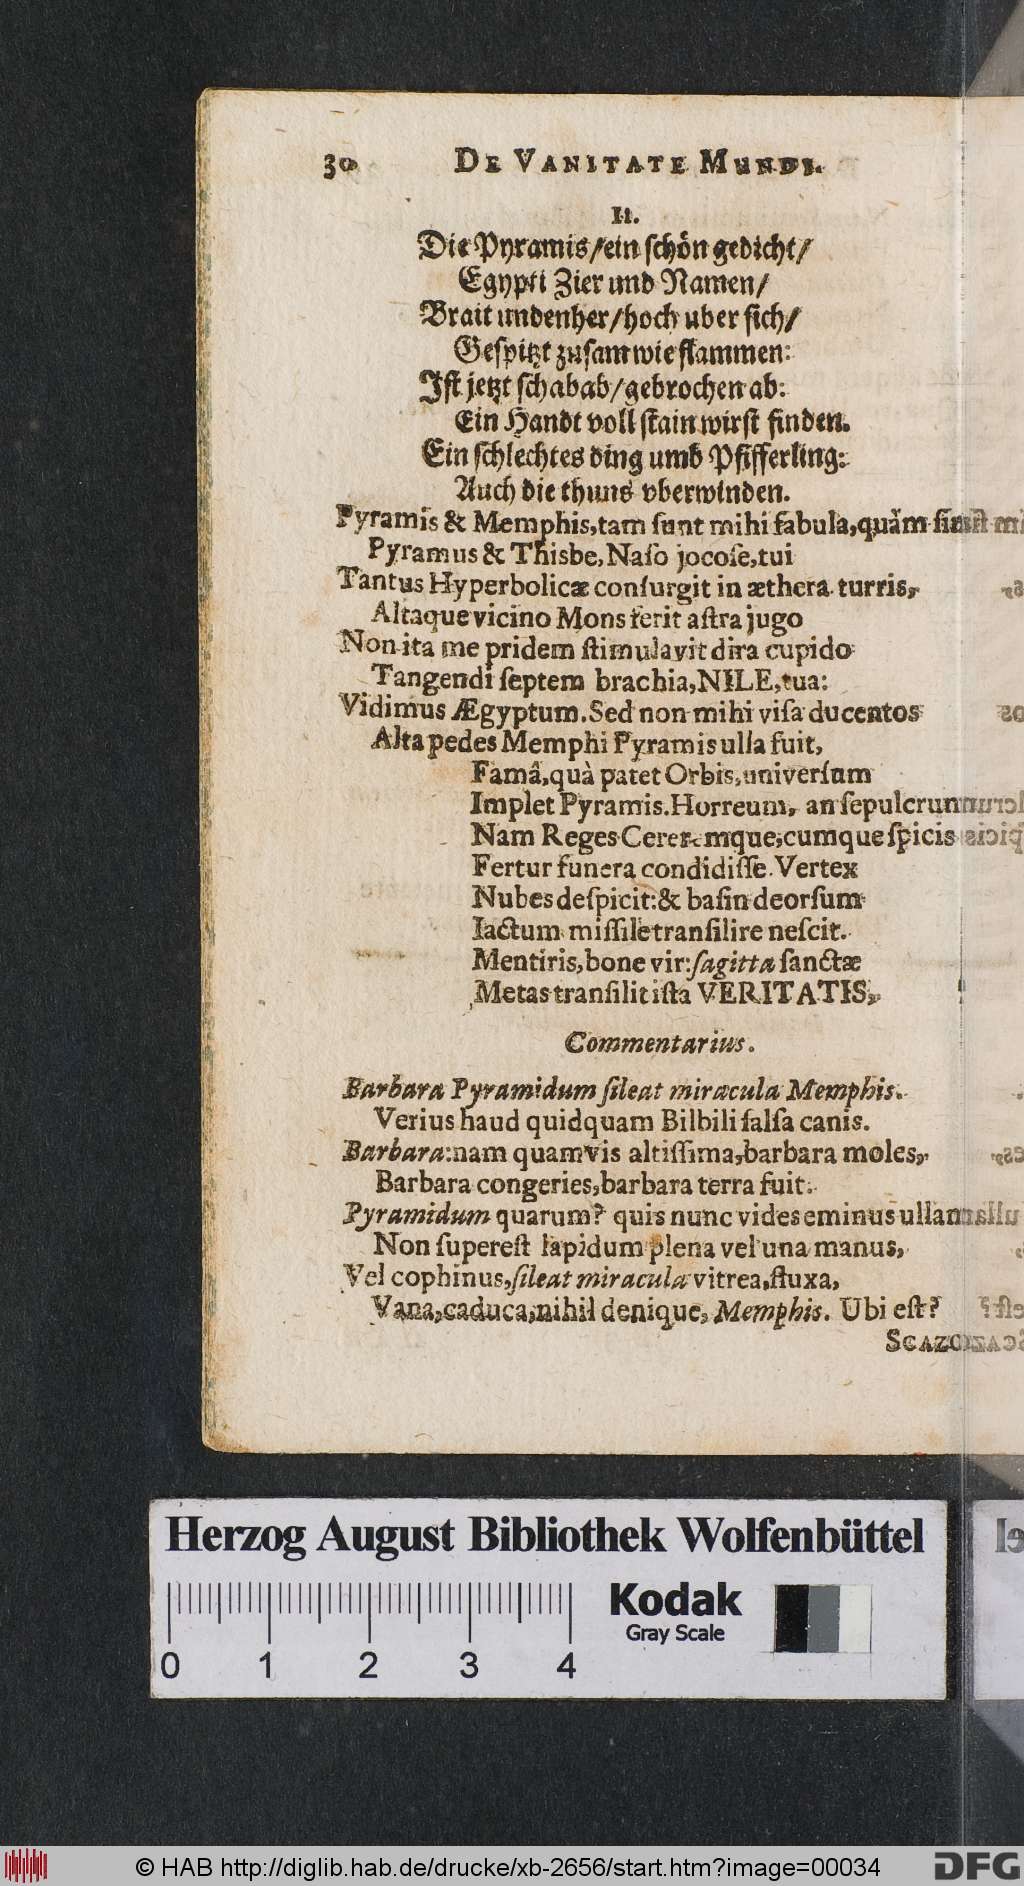 30 DE VANITATE MUNDI.
II.
Die Pyramis/ein schön gedicht/
Egypti Zier und Namen/
Brait undenher/hoch uber sich/
Gespitzt zusam wie flammen:
Ist jetzt schabab/gebrochen ab:
Ein Handt voll stain wirst finden.
Ein schlechtes ding umb Pfifferling:
Auch die thuns vberwinden.
Pyramis & Memphis, tam sunt mihi fabula, quàm
Pyramus & Thisbe, Naso jocose, tui
Tantus Hyperbolicæ consurgit in æthera turris,
Altaque vicino Mons ferit astra jugo
Non ita me pridem stimulavit dira cupido
Tangendi septem brachia, NILE, tua:
Vidimus Ægyptum. Sed non mihi visa ducentos
Alta pedes Memphi Pyramis ulla fuit,
Famâ, quà patet Orbis, universum
Implet Pyramis. Horreum, an sepulcrum
Nam Reges Cereremque, cumque spicis
Fertur funera condidisse. Vertex
Nubes despicit: & basin deorsum
Iactum missile transilire nescit.
Mentiris, bone vir: sagitta sanctæ
Metas transilit ista VERITATIS,
Commentarius.
Barbara Pyramidum sileat miracula Memphis.
Verius haud quidquam Bilbili salsa canis.
Barbara: nam quamvis altissima, barbara moles,
Barbara congeries, barbara terra fuit.
Pyramidum quarum? quis nunc vides eminus ullam
Non superest lapidum plena vel una manus,
Vel cophinus, sileat miracula vitrea, fluxa,
Vana, caduca, nihil denique, Memphis. Ubi est?
Herzog August Bibliothek Wolfenbüttel
Kodak
Gray Scale
0 1 2 3 4
© HAB http://diglib.hab.de/drucke/xb-2656/start.htm?image=00034
DFG